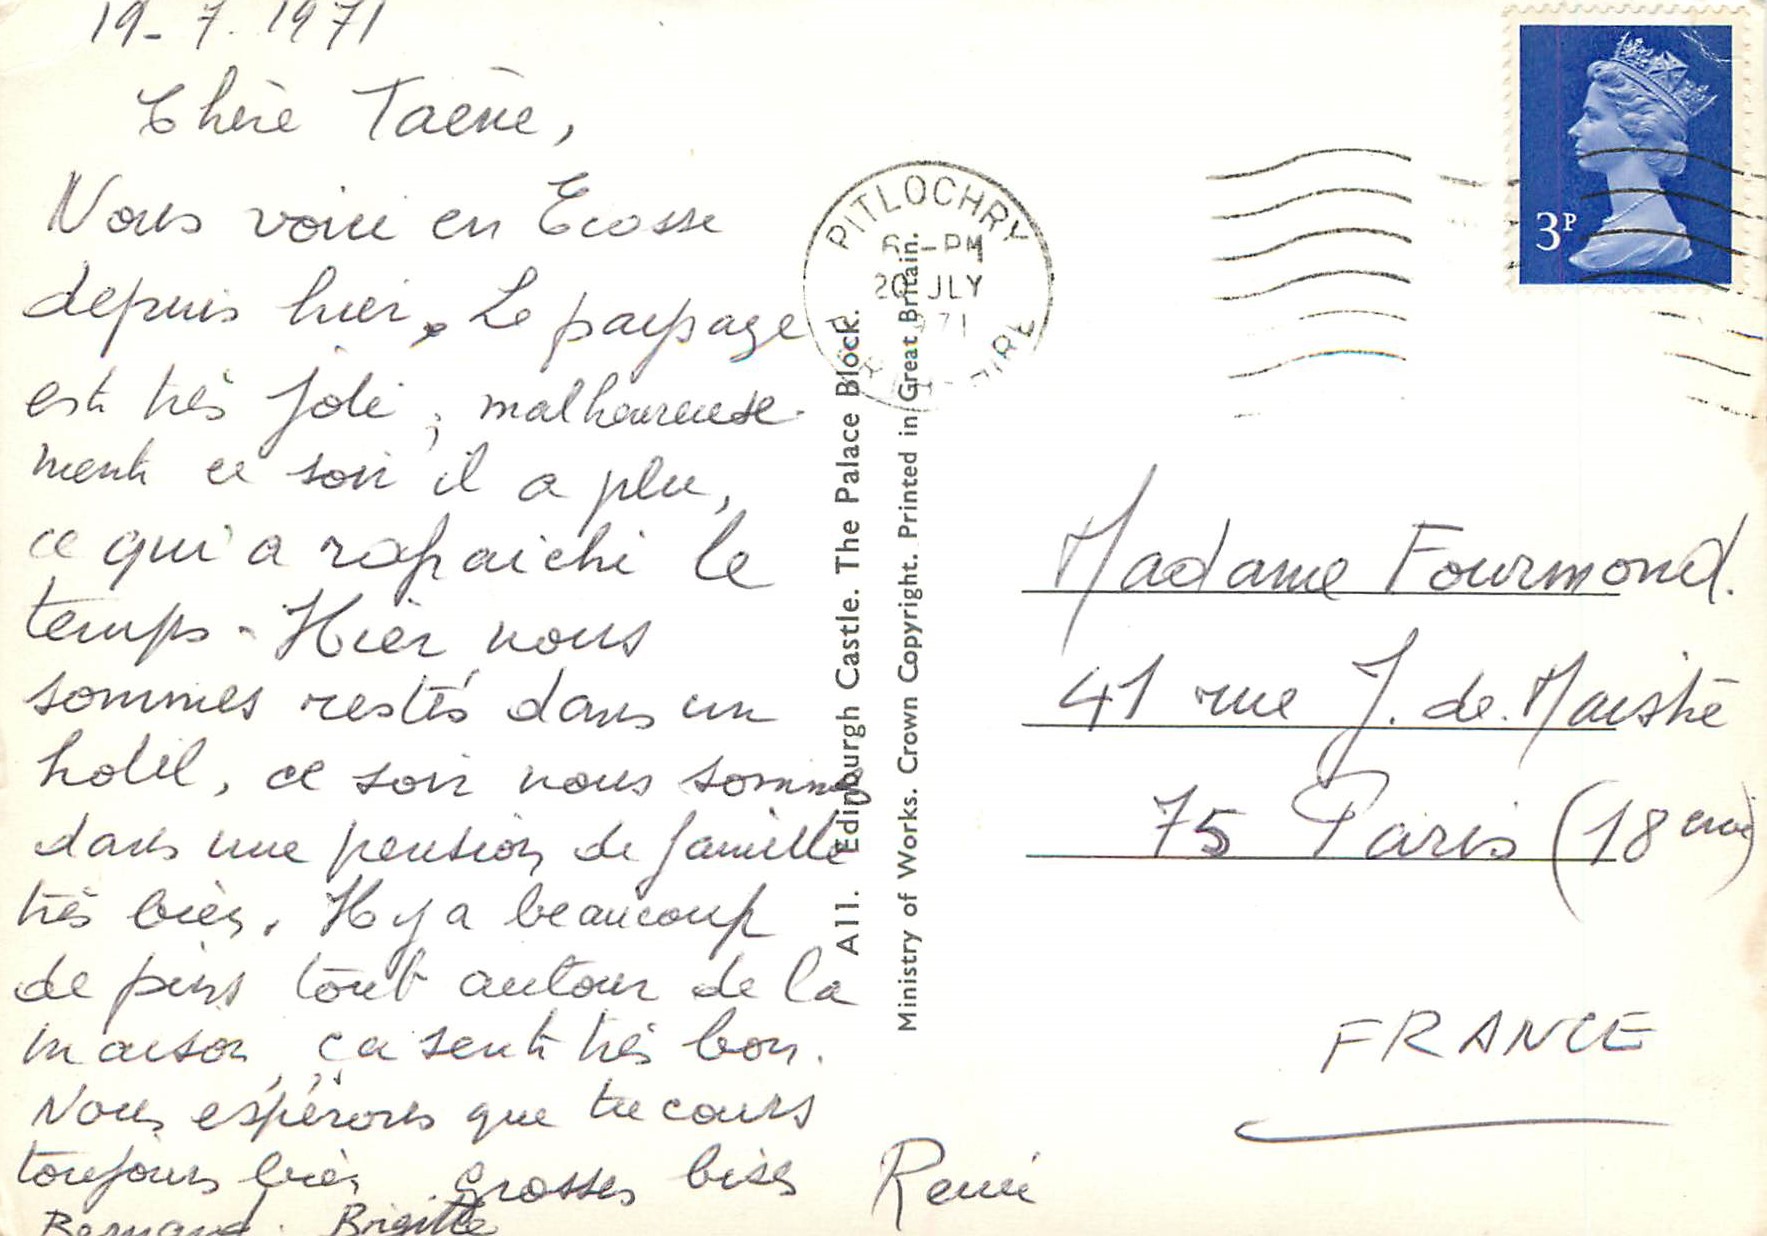 19-7.1971
Chère Taëne,
Nous voici en Ecosse
depuis hier. Le paysage
est très joli, malheureuse-
ment ce soir il a plu,
ce qui a rafraichi le
temps - Hier nous
sommes restés dans un
hotel, ce soir nous sommes
dans une pension de famille
très bien. Il y a beaucoup
de pins tout autour de la
maison, ça sent très bon.
Nous espérons que tu cours
toujours bien, grosses bises
Bernard. Brigitte
René
A11. Edinburgh Castle. The Palace Block.
Ministry of Works. Crown Copyright. Printed in Great Britain.
PITLOCHRY
-PM
20 JLY
1971
3P
Madame Fourmond.
41 rue J. de Maistre
75 Paris (18eme)
FRANCE